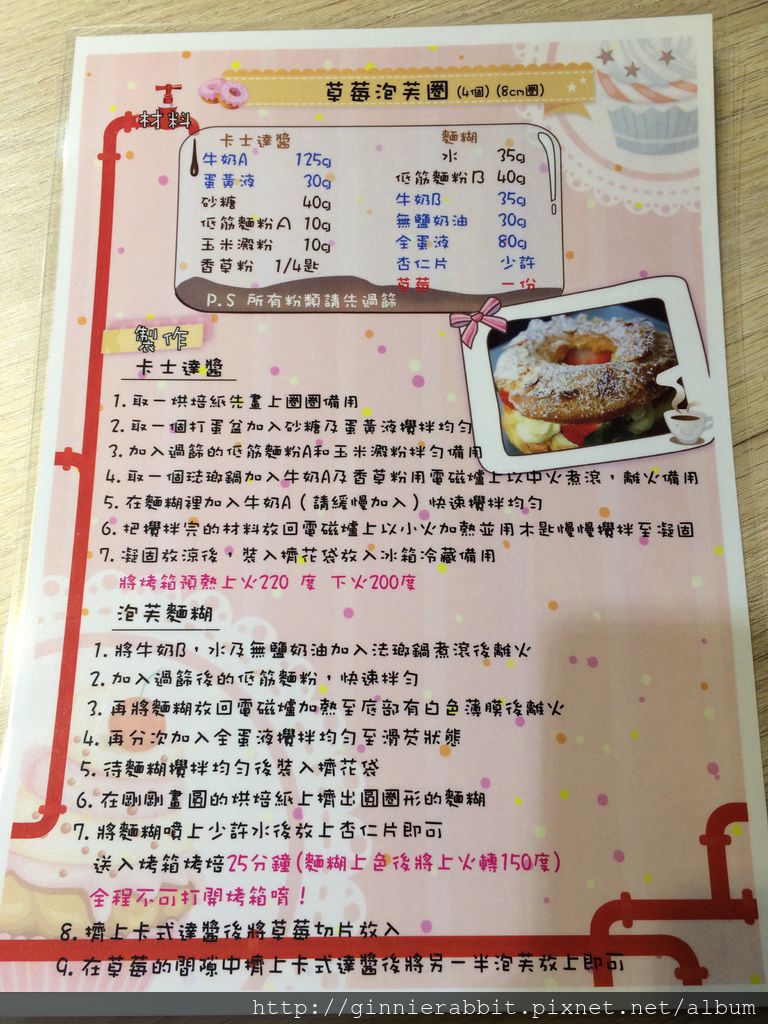 草莓泡芙圈 (4個) (8cm圈)
材料
卡士達醬
牛奶A 125g
蛋黃液 30g
砂糖 40g
低筋麵粉A 10g
玉米澱粉 10g
香草粉 1/4匙
麵糊
水 35g
低筋麵粉B 40g
牛奶B 35g
無鹽奶油 30g
全蛋液 80g
杏仁片 少許
草莓 一份
P.S 所有粉類請先過篩
製作
卡士達醬
1. 取一烘焙紙先畫上圈圈備用
2. 取一個打蛋盆加入砂糖及蛋黃液攪拌均勻
3. 加入過篩的低筋麵粉A和玉米澱粉拌勻備用
4. 取一個琺瑯鍋加入牛奶A及香草粉用電磁爐上以中火煮滾，離火備用
5. 在麵糊裡加入牛奶A（請緩慢加入）快速攪拌均勻
6. 把攪拌完的材料放回電磁爐上以小火加熱並用木匙慢慢攪拌至凝固
7. 凝固放涼後，裝入擠花袋放入冰箱冷藏備用
將烤箱預熱上火220 度 下火200度
泡芙麵糊
1. 將牛奶B，水及無鹽奶油加入法瑯鍋煮滾後離火
2. 加入過篩後的低筋麵粉，快速拌勻
3. 再將麵糊放回電磁爐加熱至底部有白色薄膜後離火
4. 再分次加入全蛋液攪拌均勻至滑芡狀態
5. 待麵糊攪拌均勻後裝入擠花袋
6. 在剛剛畫圓的烘焙紙上擠出圓圈形的麵糊
7. 將麵糊噴上少許水後放上杏仁片即可
送入烤箱烤焙25分鐘(麵糊上色後將上火轉150度)
全程不可打開烤箱唷！
8. 擠上卡式達醬後將草莓切片放入
9. 在草莓的間隙中擠上卡式達醬後將另一半泡芙放上即可
http://ginnierabbit.pixnet.net/album